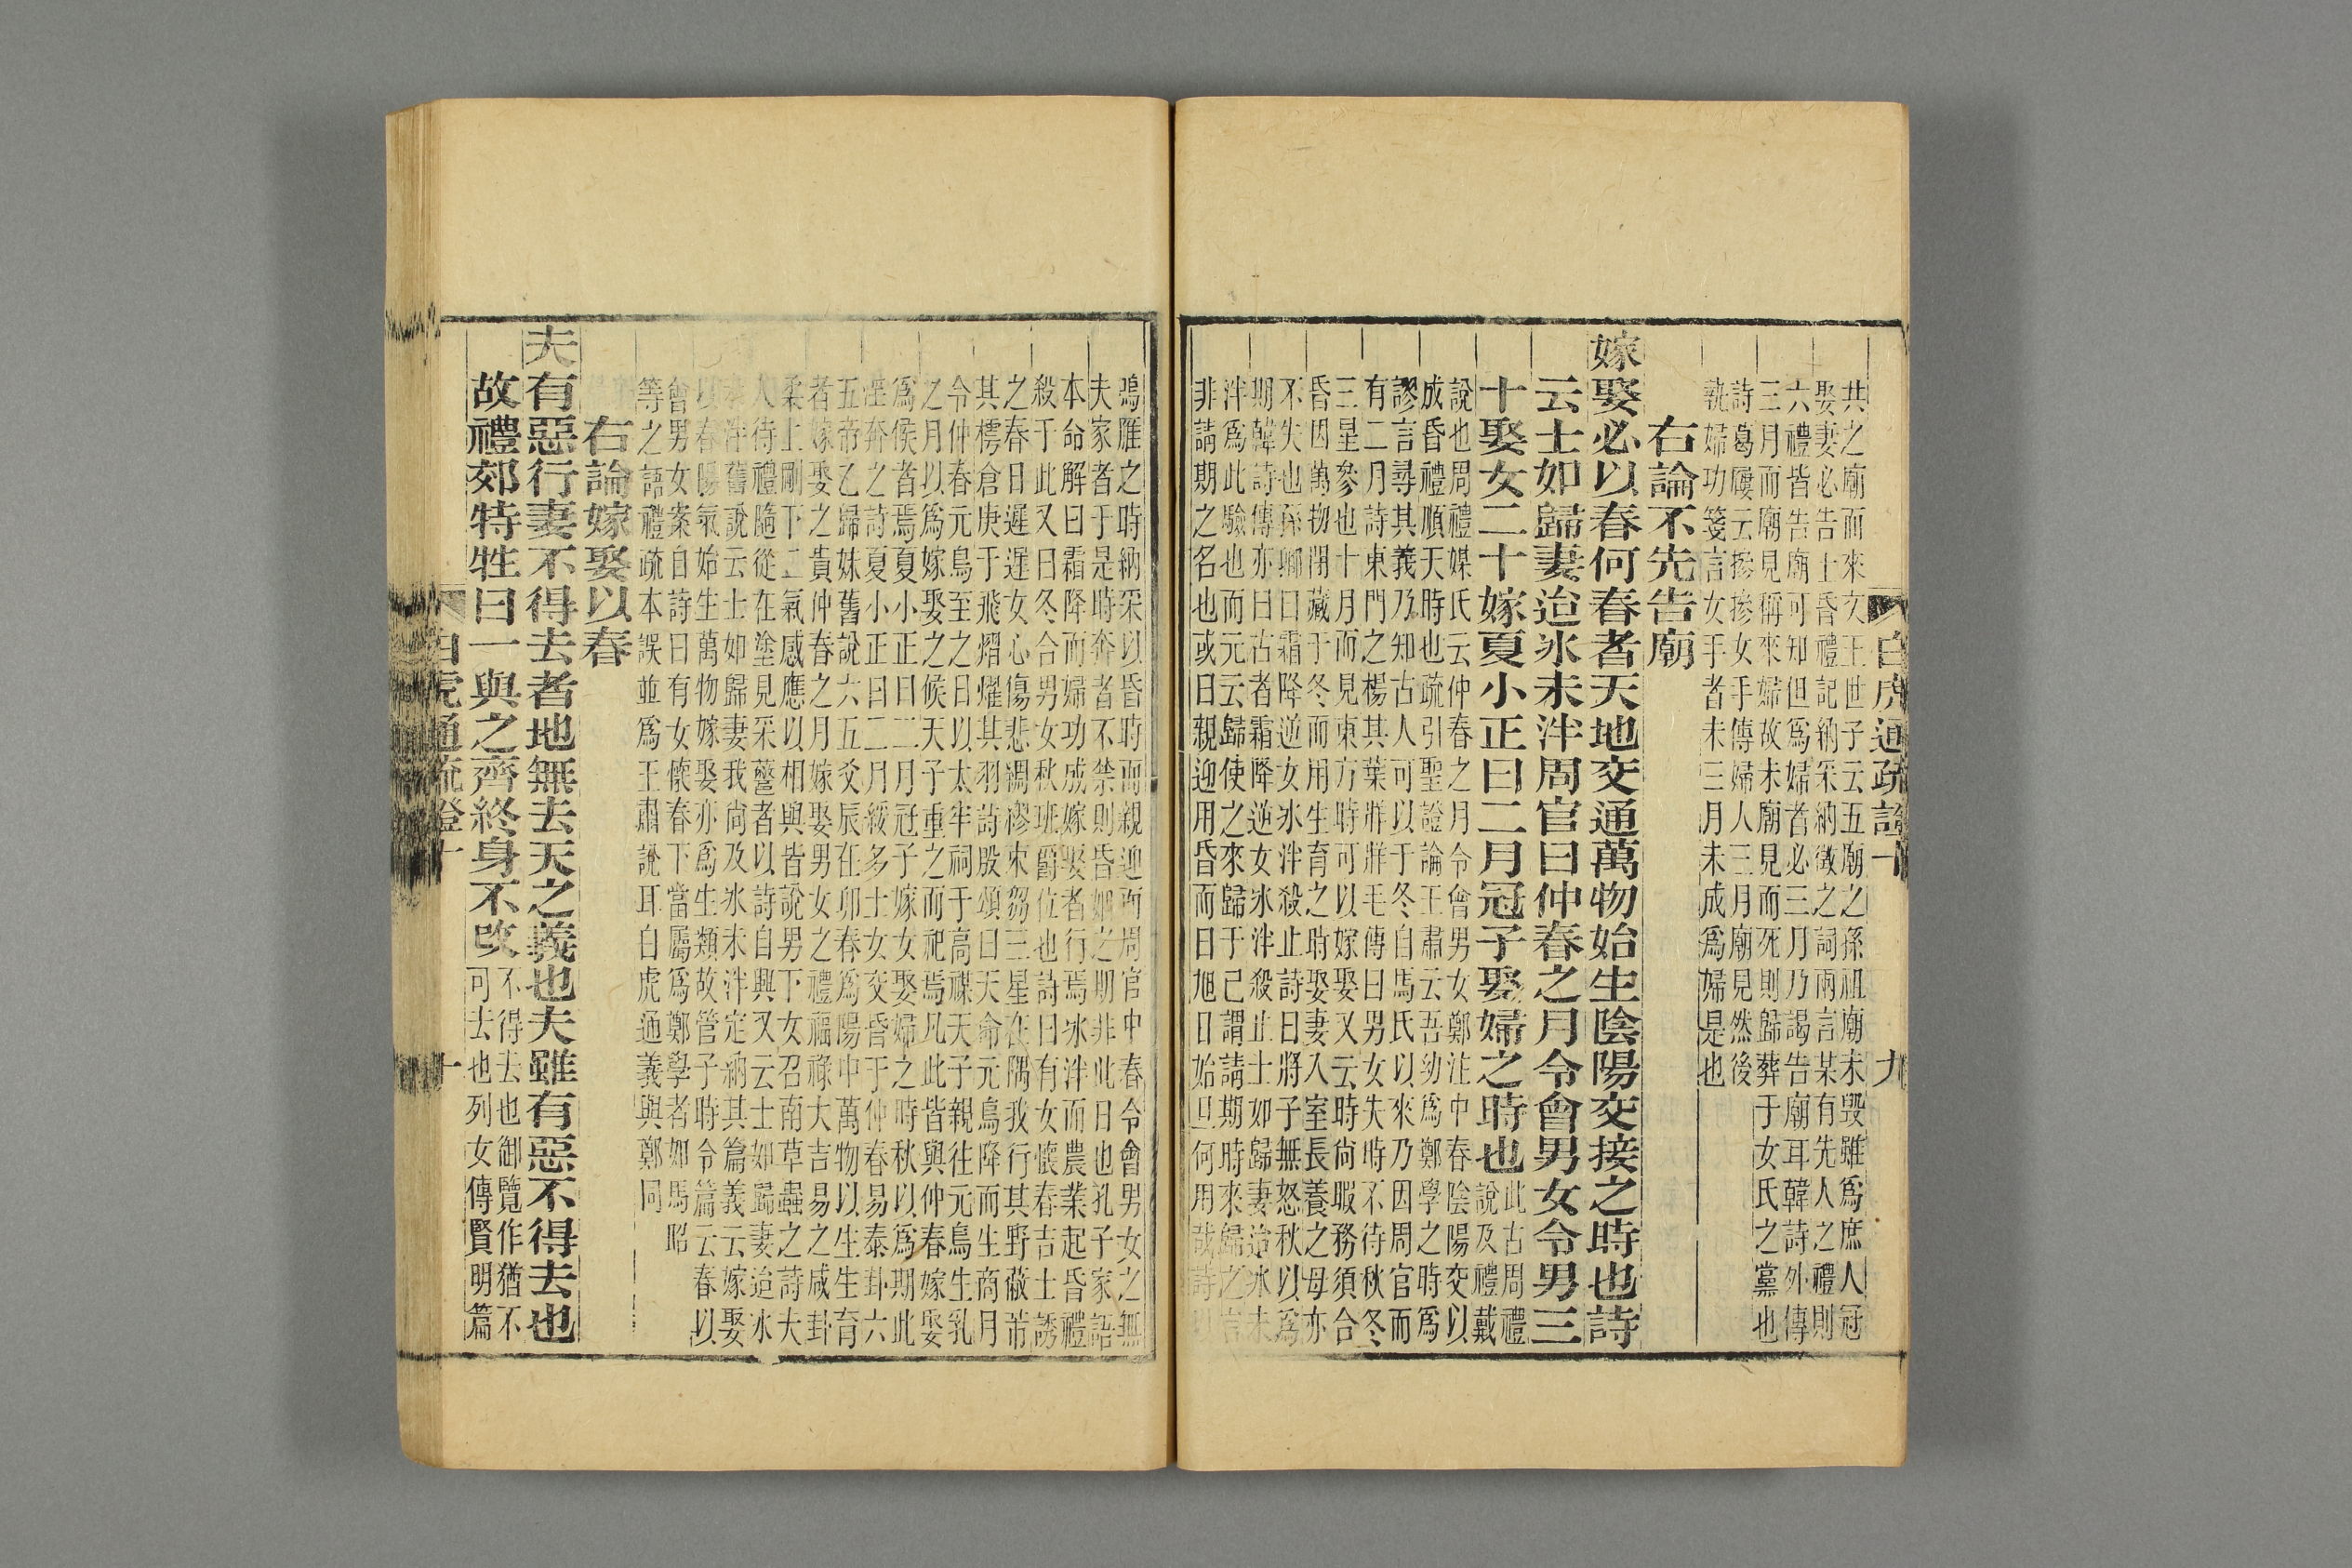 白虎通疏證十　九
共之廟而來文王世子云五廟之孫祖廟未毀雖爲庶人冠
娶妻必告士昏禮記納采納徵之詞兩言某有先人之禮則
六禮皆告廟可知但爲婦者必三月乃謁告廟耳韓詩外傳
三月而廟見稱來婦故未廟見而死則歸葬于女氏之黨也
詩葛屨云摻摻女手傳婦人三月廟見然後
執婦功箋言女手者未三月未成爲婦是也
右論不先告廟
嫁娶必以春何春者天地交通萬物始生陰陽交接之時也詩
云士如歸妻迨氷未泮周官曰仲春之月令會男女令男三
十娶女二十嫁夏小正曰二月冠子娶婦之時也此古周禮
說及禮戴
說也周禮媒氏云仲春之月令會男女鄭注中春陰陽交以
成昏禮順天時也疏引聖證論王肅云吾幼爲鄭學之時爲
謬言尋其義乃知古人可以于冬自馬氏以來乃因周官而
有二月詩東門之楊其葉牂牂毛傳曰男女失時不待秋冬
三星參也十月而見東方時可以嫁娶又云時尙暇務須合
昏因萬物閉藏于冬而用生育之時娶妻入室長養之母亦
不失也孫卿曰霜降逆女氷泮殺止詩曰將子無怒秋以爲
期韓詩傳亦曰古者霜降逆女氷泮殺止士如歸妻迨氷未
泮爲此驗也而元云歸使之來歸于己謂請期時來歸之言
非請期之名也或曰親迎用昏而曰旭日始旦何用哉詩
鳴雁之時納采以昏時而親迎而周官中春令會男女之無
夫家者于是時奔者不禁則昏姻之期非此日也孔子家語
本命解曰霜降而婦功成嫁娶者行焉氷泮而農業起昏禮
殺于此又曰冬合男女秋班爵位也詩曰有女懷春吉士誘
之春日遲遲女心傷悲綢繆束芻三星在隅我行其野蔽芾
其樗倉庚于飛熠燿其羽詩殷頌曰天命元鳥降而生商月
令仲春元鳥至之日以太牢祠于高禖天子親往元鳥生乳
之月以爲嫁娶之候天子重之而祀焉凡此皆與仲春嫁娶
爲候者焉夏小正曰二月冠子嫁女娶婦之時秋以爲期此
淫奔之詩夏小正曰二月綏多士女交昏于仲春易泰卦六
五帝乙歸妹舊說六五爻辰在卯春爲陽中萬物以生生育
者嫁娶之貴仲春之月嫁娶男女之禮福祿大吉易之咸卦
柔上剛下二氣感應以相與皆說男下女召南草蟲之詩大
人待禮隨從在塗見采鼈者以詩自興又云士如歸妻迨氷
未泮舊說云士如歸妻我尙及氷未泮定納其篇義云嫁娶
以春陽氣始生萬物嫁娶亦爲生類故管子時令篇云春以
會男女案自詩曰有女懷春下當屬爲鄭學者如馬昭
等之語禮疏本誤並爲王肅說耳白虎通義與鄭同
右論嫁娶以春
夫有惡行妻不得去者地無去天之義也夫雖有惡不得去也
故禮郊特牲曰一與之齊終身不改不得去也御覽作猶不
可去也列女傳賢明篇
白虎通疏證十　十